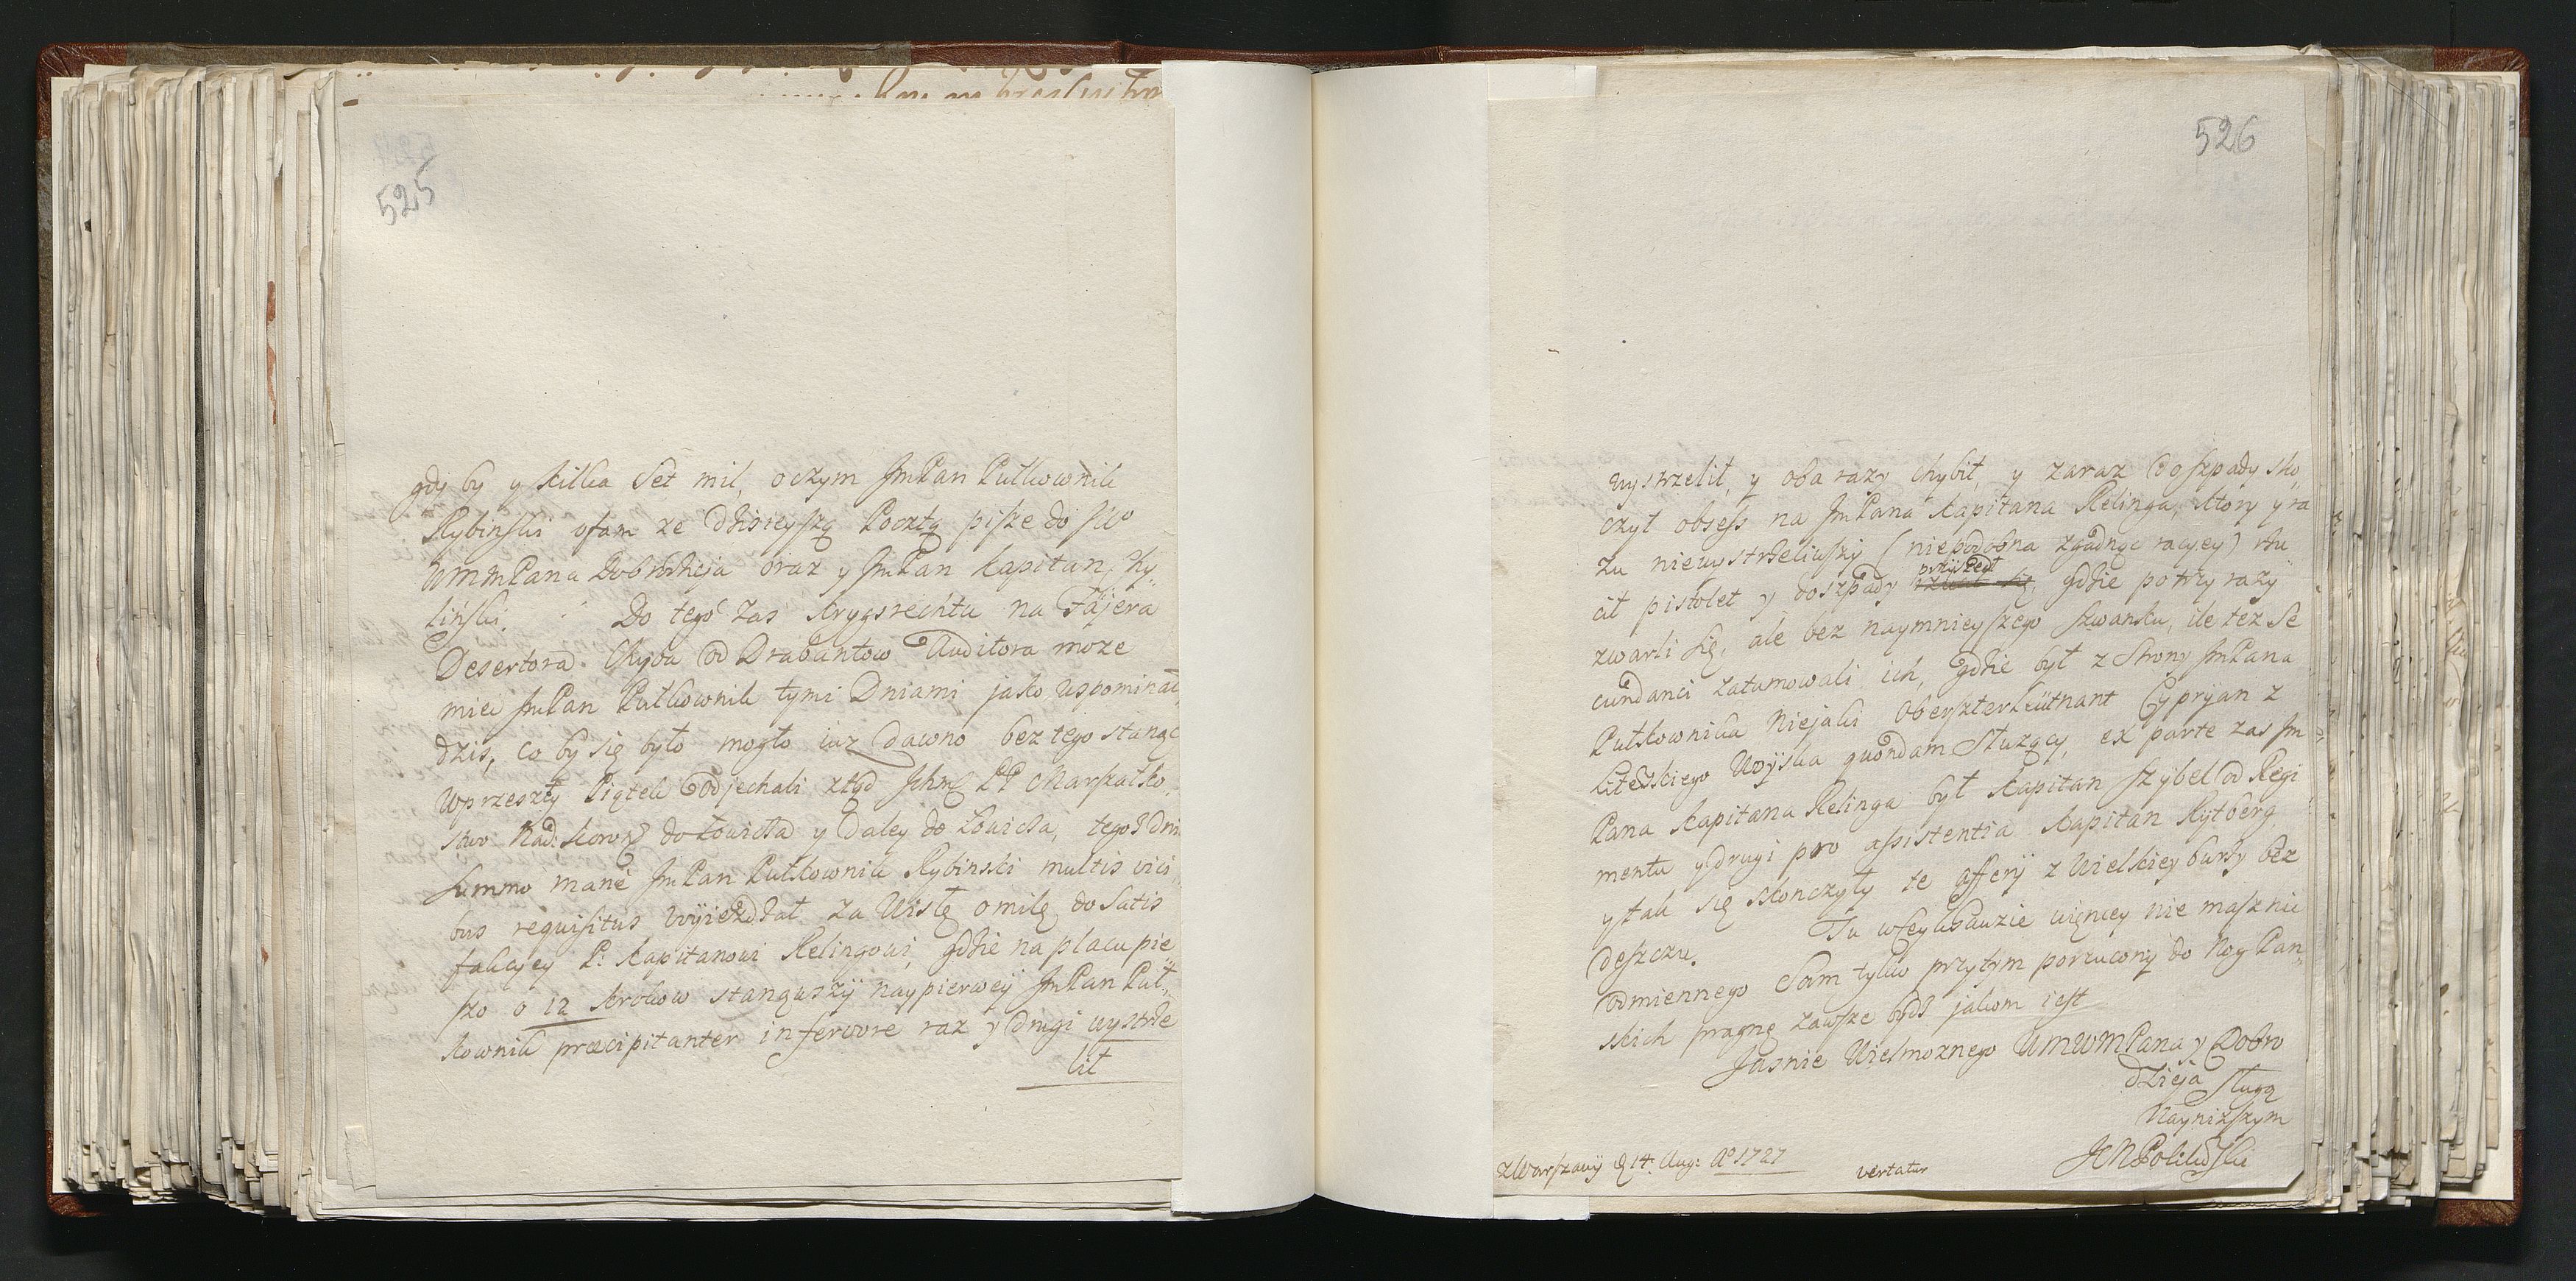 525
gdy by y kilka Set mil, o czym JmPan Pułkownik
Rybinski ufam ze dzisieyszą Pocztą pisze do JWo
WMMPana Dobrodzieja oraz y JmPan Kapitan Zy„
linski. Do tego zas krygsrechtu na Fajera
Desertora Chyba od Drabantow Auditora moze
miec JmPan Pułkownik tymi Dniami jako wspominał
dzis, co by się było mogło iuz dawno bez tego stanąc
Wprzeszły Piątek odjechali ztąd PP Marszałko„
stwo Nad: Koron do Łowicza y daley do tegoz dni
summo mane JmPan Pułkownik Rybinski multis vici„
bus requisitus wyiezdzał za Wisłę o milę do Satis
fakcyey P: Kapitanowi Relingowi, gdzie na placu pie
szo o 12 krokow stanąwszÿ naypierweÿ JmPan Puł„
kownik præcipitanter in fervore raz y drugi wystrze
lił
526
wystrzelił, y oba razy chybił, y zaraz do szpady sko„
czył obses na JmPana Kapitana Relinga, ktory y ra
zu niewystrzeliwszy (niepodobna zgadnąc racyey) rzu
cił pistolet y do szpady przyszedł gdzie po trzy razy
zwarli się, ale bez naymnieyszego szwanku, ile tez Se
cundanci zatamowali ich, gdzie był z Strony JmPana
Pułkownika Niejaki Oberszterleütnant Cypryan z
Litewskiego Woyska quondam Służący, ex parte zas Jm
Pana Kapitana Relinga był Kapitan Szybel od Regi
mentu y drugi pro assistentia Kapitan Rytberg
y tak się skonczyły te afferÿ z Wielkiey burzy bez
deszczu. Tu więcey nie masz nic
odmiennego Sam tylko przytym porzucony do Nog Pan„
skich pragnę zawsze bydz jakom iest
Jasnie Wielmoznego WMWMPana y Dobro
dzieja sługą
Nayniższym
z Warszawÿ d 14: Aug: Ao 1727
vertatur